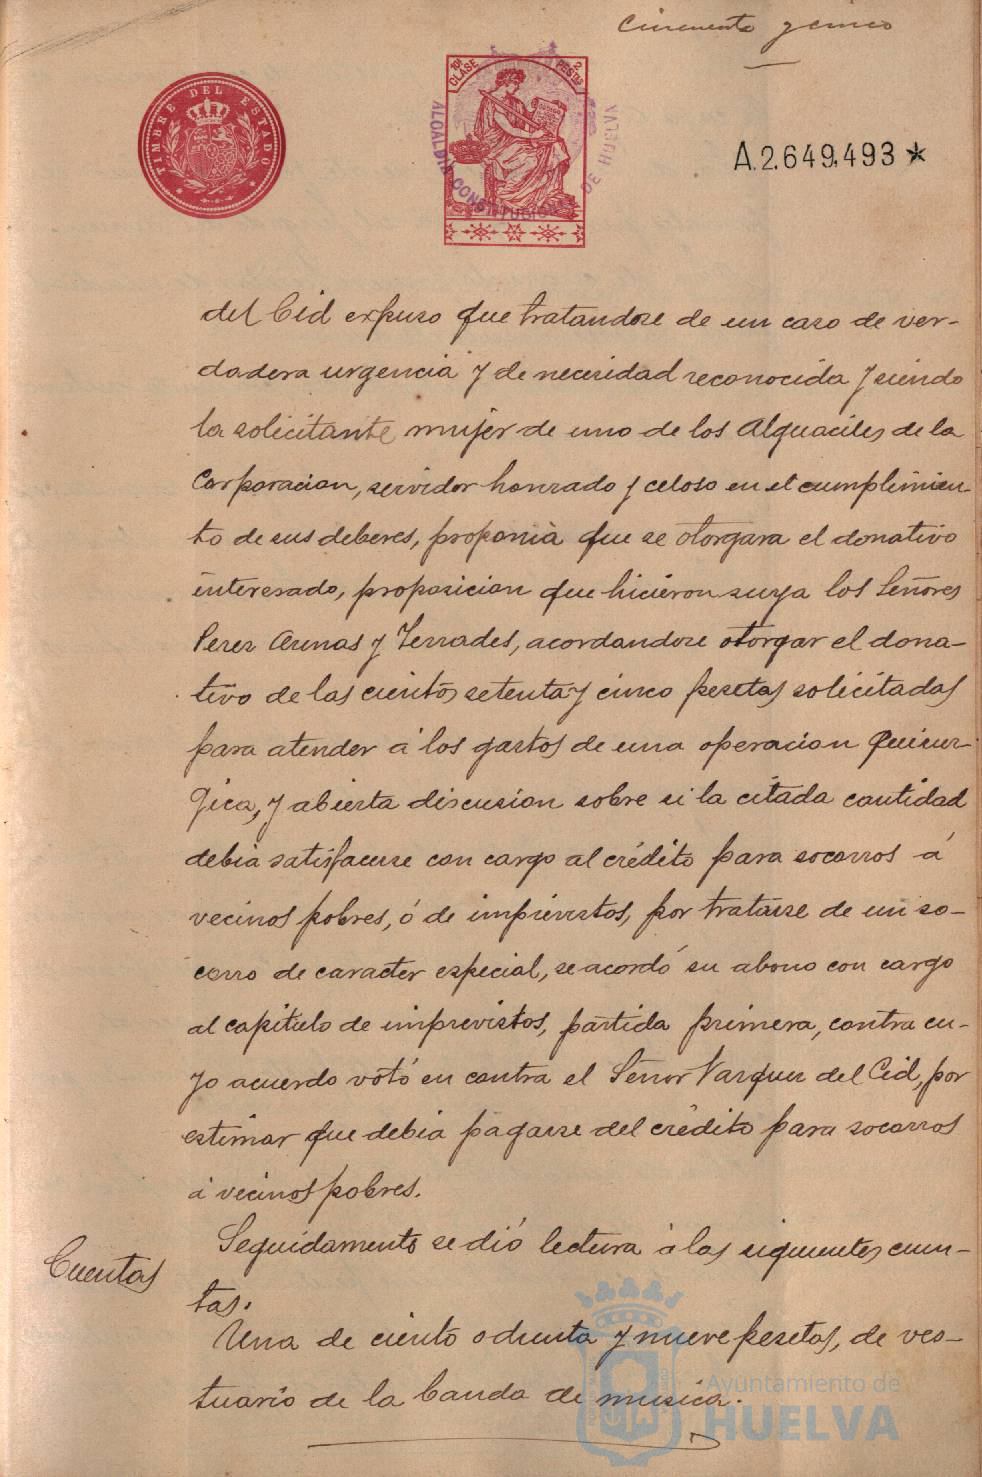 Cincuenta y cinco
TIMBRE DEL ESTADO
10ª CLASE 2 PESTAS
ALCALDIA CONSTITUCIONAL DE HUELVA
A.2.649,493 *
del Cid expuso que tratandose de un caso de ver-
dadera urgencia y de necesidad reconocida y siendo
la solicitante mujer de uno de los Alguaciles de la
Corporacion, servidor honrado y celoso en el cumplimien-
to de sus deberes, proponia que se otorgara el donativo
interesado, proposicion que hicieron suya los Señores
Perez Arenas y Terrades, acordandose otorgar el dona-
tivo de las cientos setenta y cinco pesetas solicitadas
para atender á los gastos de una operacion quirur-
gica, y abierta discusion sobre si la citada cantidad
debia satisfacerse con cargo al crédito para socorros á
vecinos pobres, ó de imprevistos, por tratarse de un so-
corro de caracter especial, se acordó su abono con cargo
al capitulo de imprevistos, partida primera, contra cu-
yo acuerdo votó en contra el Señor Vazquez del Cid, por
estimar que debia pagarse del crédito para socorros
á vecinos pobres.
Cuentas
Seguidamente se dió lectura á las siguientes cuen-
tas.
Una de ciento ochenta y nueve pesetas, de ves-
tuario de la banda de musica.
Ayuntamiento de
HUELVA